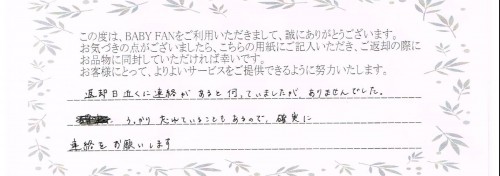 この度は、BABY FANをご利用いただきまして、誠にありがとうございます。
お気づきの点がございましたら、こちらの用紙にご記入いただき、ご返却の際に
お品物に同封していただければ幸いです。
お客様にとって、よりよいサービスをご提供できるように努力いたします。
返却日近くに連絡があると伺っていましたが ありませんでした。
うっかり 忘れていることもあるので、確実に
連絡をお願いします